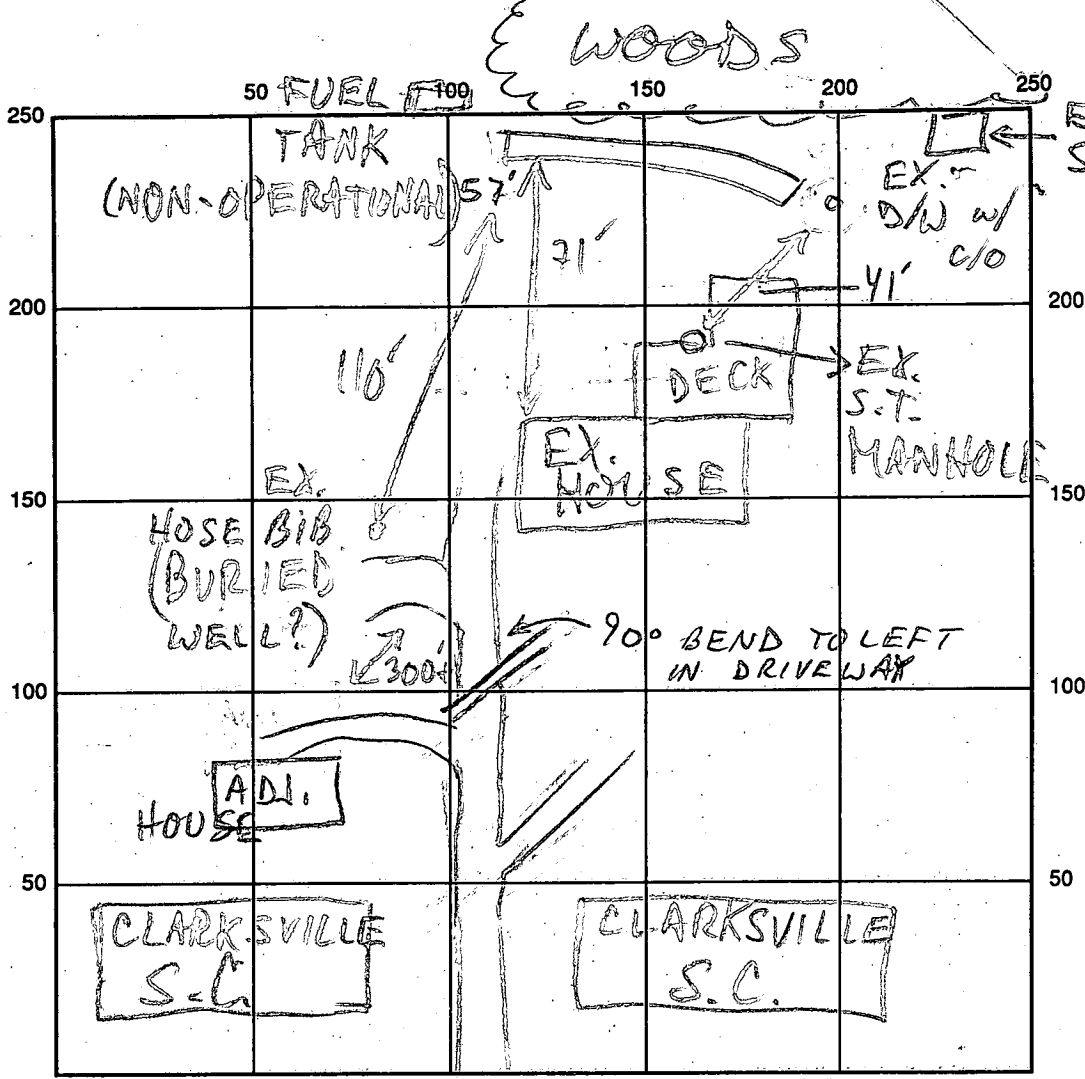 WOODS
50
100
150
200
250
FUEL
TANK
(NON-OPERATIONAL)
57'
250
EX.
D/W w/
C/O
71'
41'
200
200
110'
DECK
EX.
S.T.
MANHOLE
EX.
HOUSE
150
150
EX.
HOSE BIB
(BURIED
WELL?)
300±
90° BEND TO LEFT
IN DRIVEWAY
100
100
ADJ.
HOUSE
50
50
CLARKSVILLE
S.C.
CLARKSVILLE
S.C.